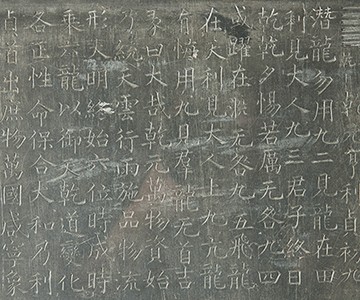 亨利貞初九
潛龍勿用九二見龍在田
利見大人九三君子終日
乾乾夕惕若厲无咎九四
或躍在淵无咎九五飛龍
在天利見大人上九亢龍
有悔用九見羣龍无首吉
彖曰大哉乾元萬物資始
乃統天雲行雨施品物流
形大明終始六位時成時
乘六龍以御天乾道變化
各正性命保合大和乃利
貞首出庶物萬國咸寧象